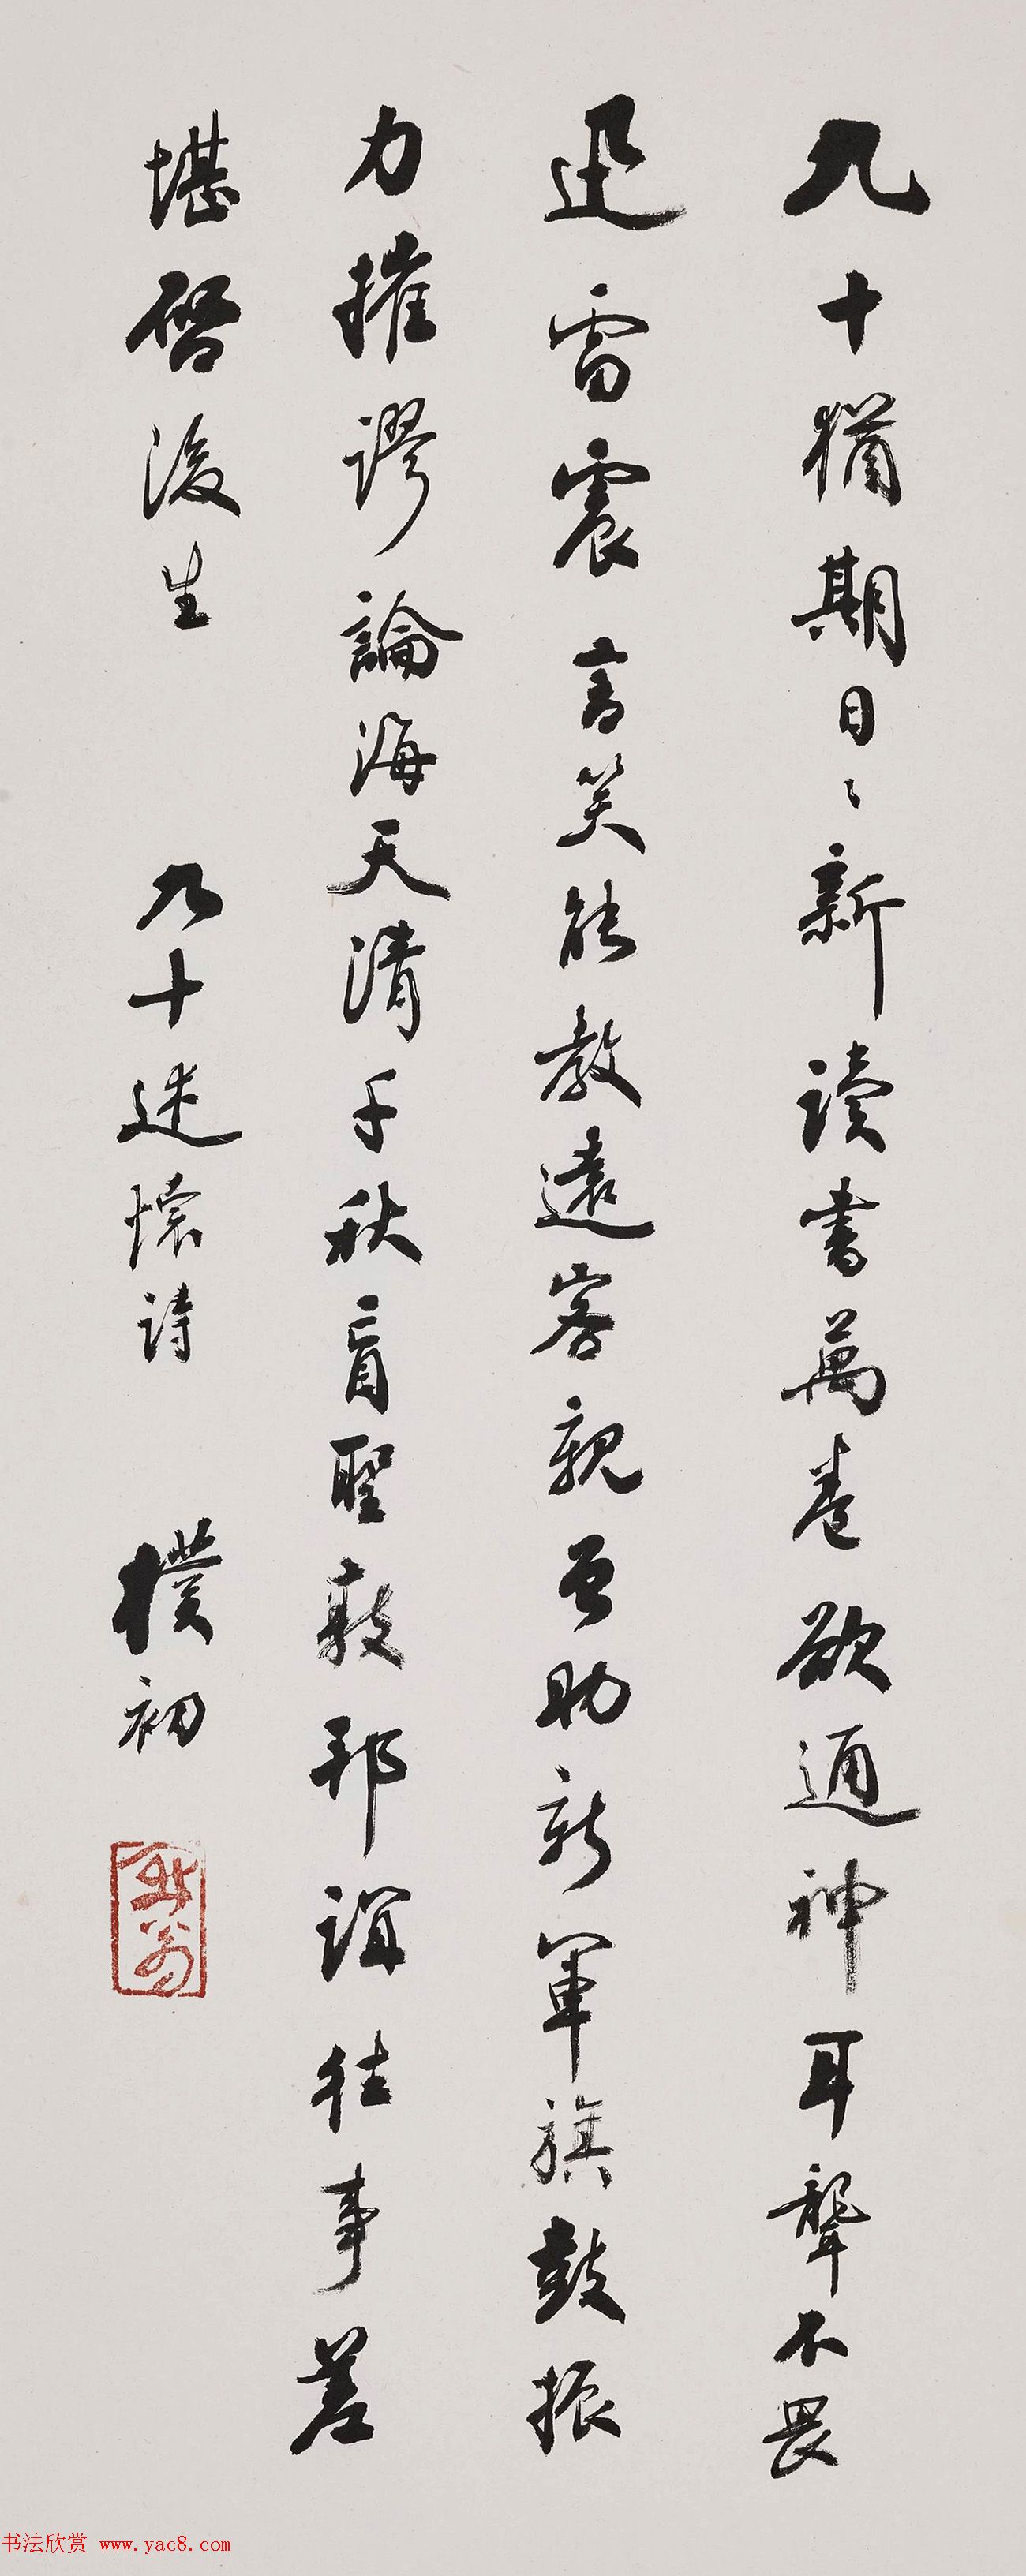 九十猶期日〻新读書萬卷欲通神耳聾不畏
迅雷震言笑能教遠客親曾助新軍旗鼓振
力摧謬論海天清千秋盲聖敦邦谊往事差
堪啓後生 九十述懷诗 樸初
书法欣赏 www.yac8.com